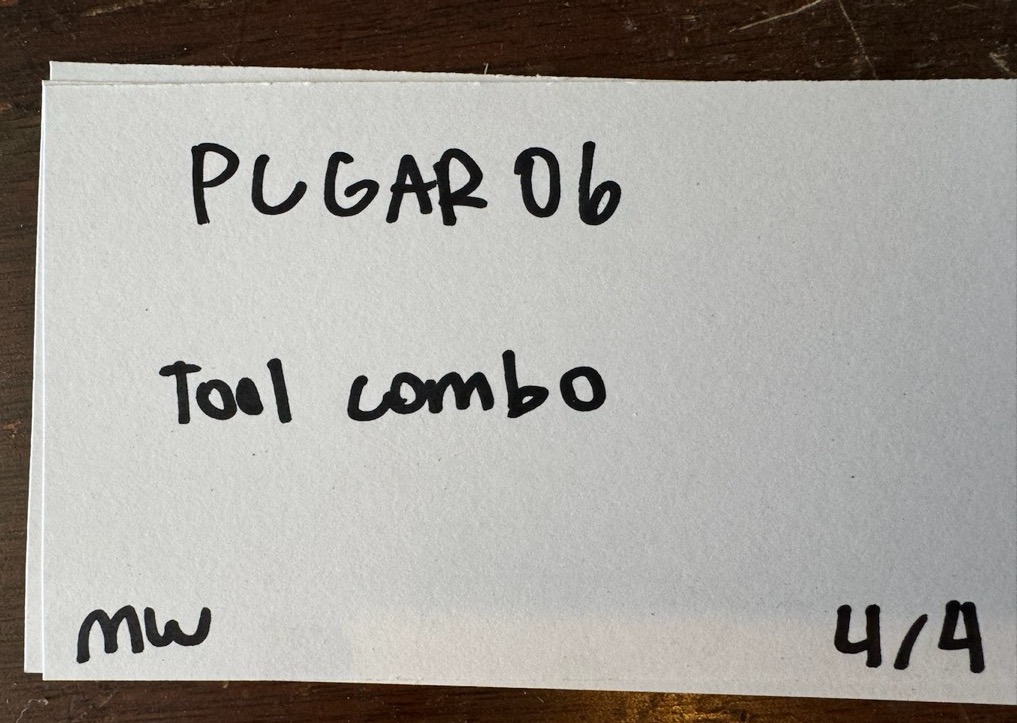 PCGAR06
Tool combo
MW
4/4